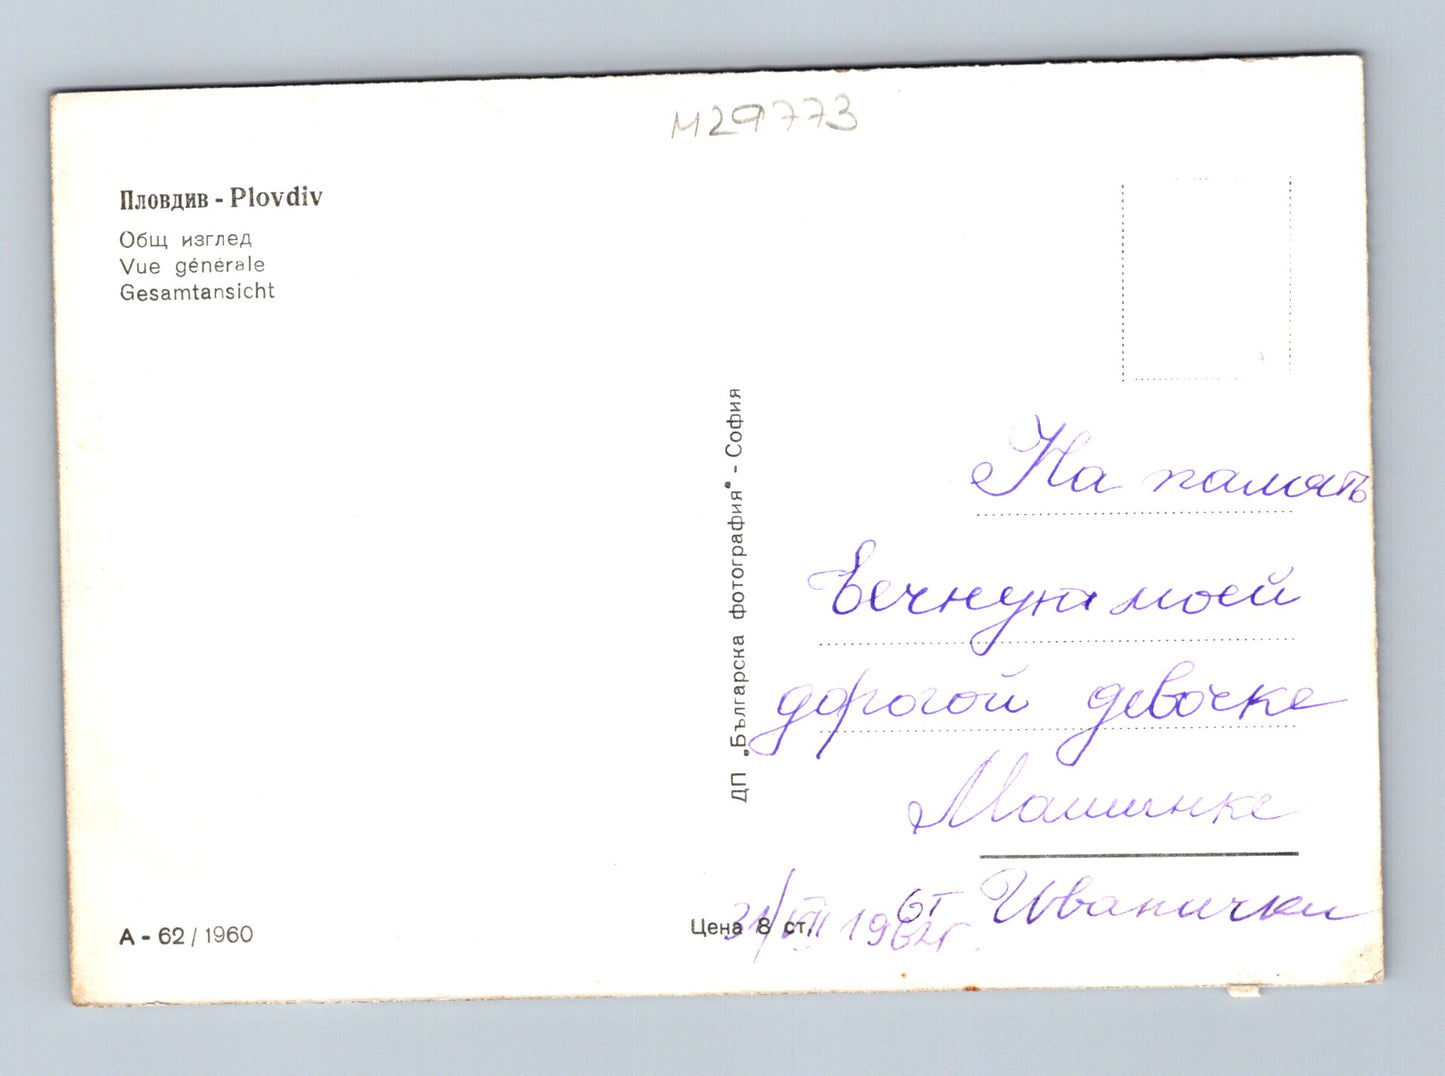 М29773
Пловдив - Plovdiv
Общ изглед
Vue générale
Gesamtansicht
ДП „Българска фотография" - София
На память
Вечную моей
дорогой девочке
Машинке
от Иванички
31/VIII 1962г.
А - 62 / 1960
Цена 8 ст.